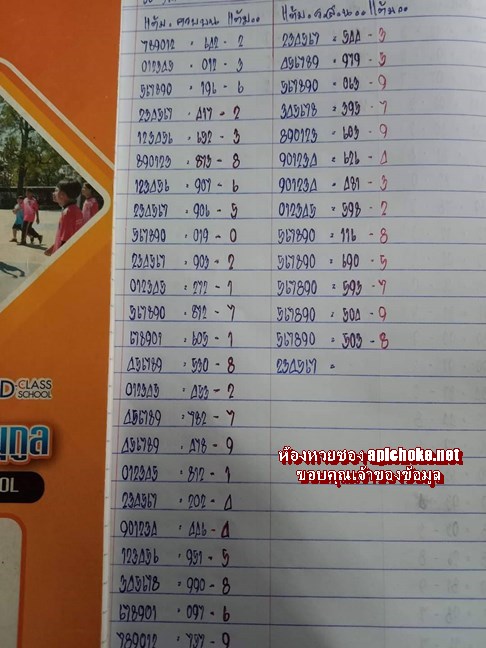 789012 = 642 - 2
012345 = 012 - 3
567890 = 196 - 6
234567 = 417 - 2
123456 = 632 - 3
890123 = 873 - 8
123456 = 907 - 6
234567 = 906 - 5
567890 = 019 - 0
234567 = 903 - 2
012345 = 272 - 1
567890 = 872 - 7
678901 = 605 - 1
456789 = 530 - 8
012345 = 453 - 2
456789 = 782 - 7
456789 = 478 - 9
012345 = 812 - 1
234567 = 202 - 4
901234 = 446 - 4
123456 = 951 - 5
345678 = 990 - 8
678901 = 097 - 6
789012 = 737 - 9
234567 = 544 - 3
456789 = 979 - 5
567890 = 063 - 9
345678 = 395 - 7
890123 = 603 - 9
901234 = 626 - 4
901234 = 481 - 3
012345 = 598 - 2
567890 = 116 - 8
567890 = 690 - 5
567890 = 593 - 7
567890 = 504 - 9
567890 = 503 - 8
234567 =
D-CLASS
SCHOOL
นกูล
OL
ห้องหวยซอง apichoke.net
ขอบคุณเจ้าของข้อมูล